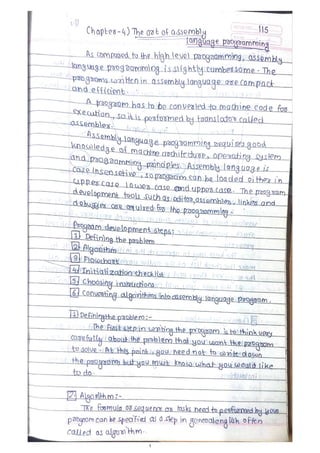 Chapter-4) The art of assembly
115
language programming
As compared to the high level programming, assembly
language programming is slightly cumbersome. The
programs written in assembly language are compact
and efficient.
A program has to be converted to machine code for
execution, so it is performed by translator called
assembler.
Assembly language programming requires good
knowledge of machine architecture, operating system
and programming principles. Assembly language is
case insensetive, so program can be loaded either in
uppercase lower case and upper case. The program
development tools such as editor, assembler, linker and
debugger are required for the programming.
Program development steps:
1 Defining the problem
2 Algorithm
3 Flowchart
4 Initialization checklist
5 Choosing instructions
6 Converting algorithms into assembly language program.
1 Defining the problem:-
The first step in writing the program is to think very
carefully about the problem that you want the program
to solve. At this point, you need not to write down
the program but you must know what you would like
to do.
2 Algorithm:-
The formula or sequence or tasks need to performed by your
program can be specified as a step in general english often
called as algorithm.